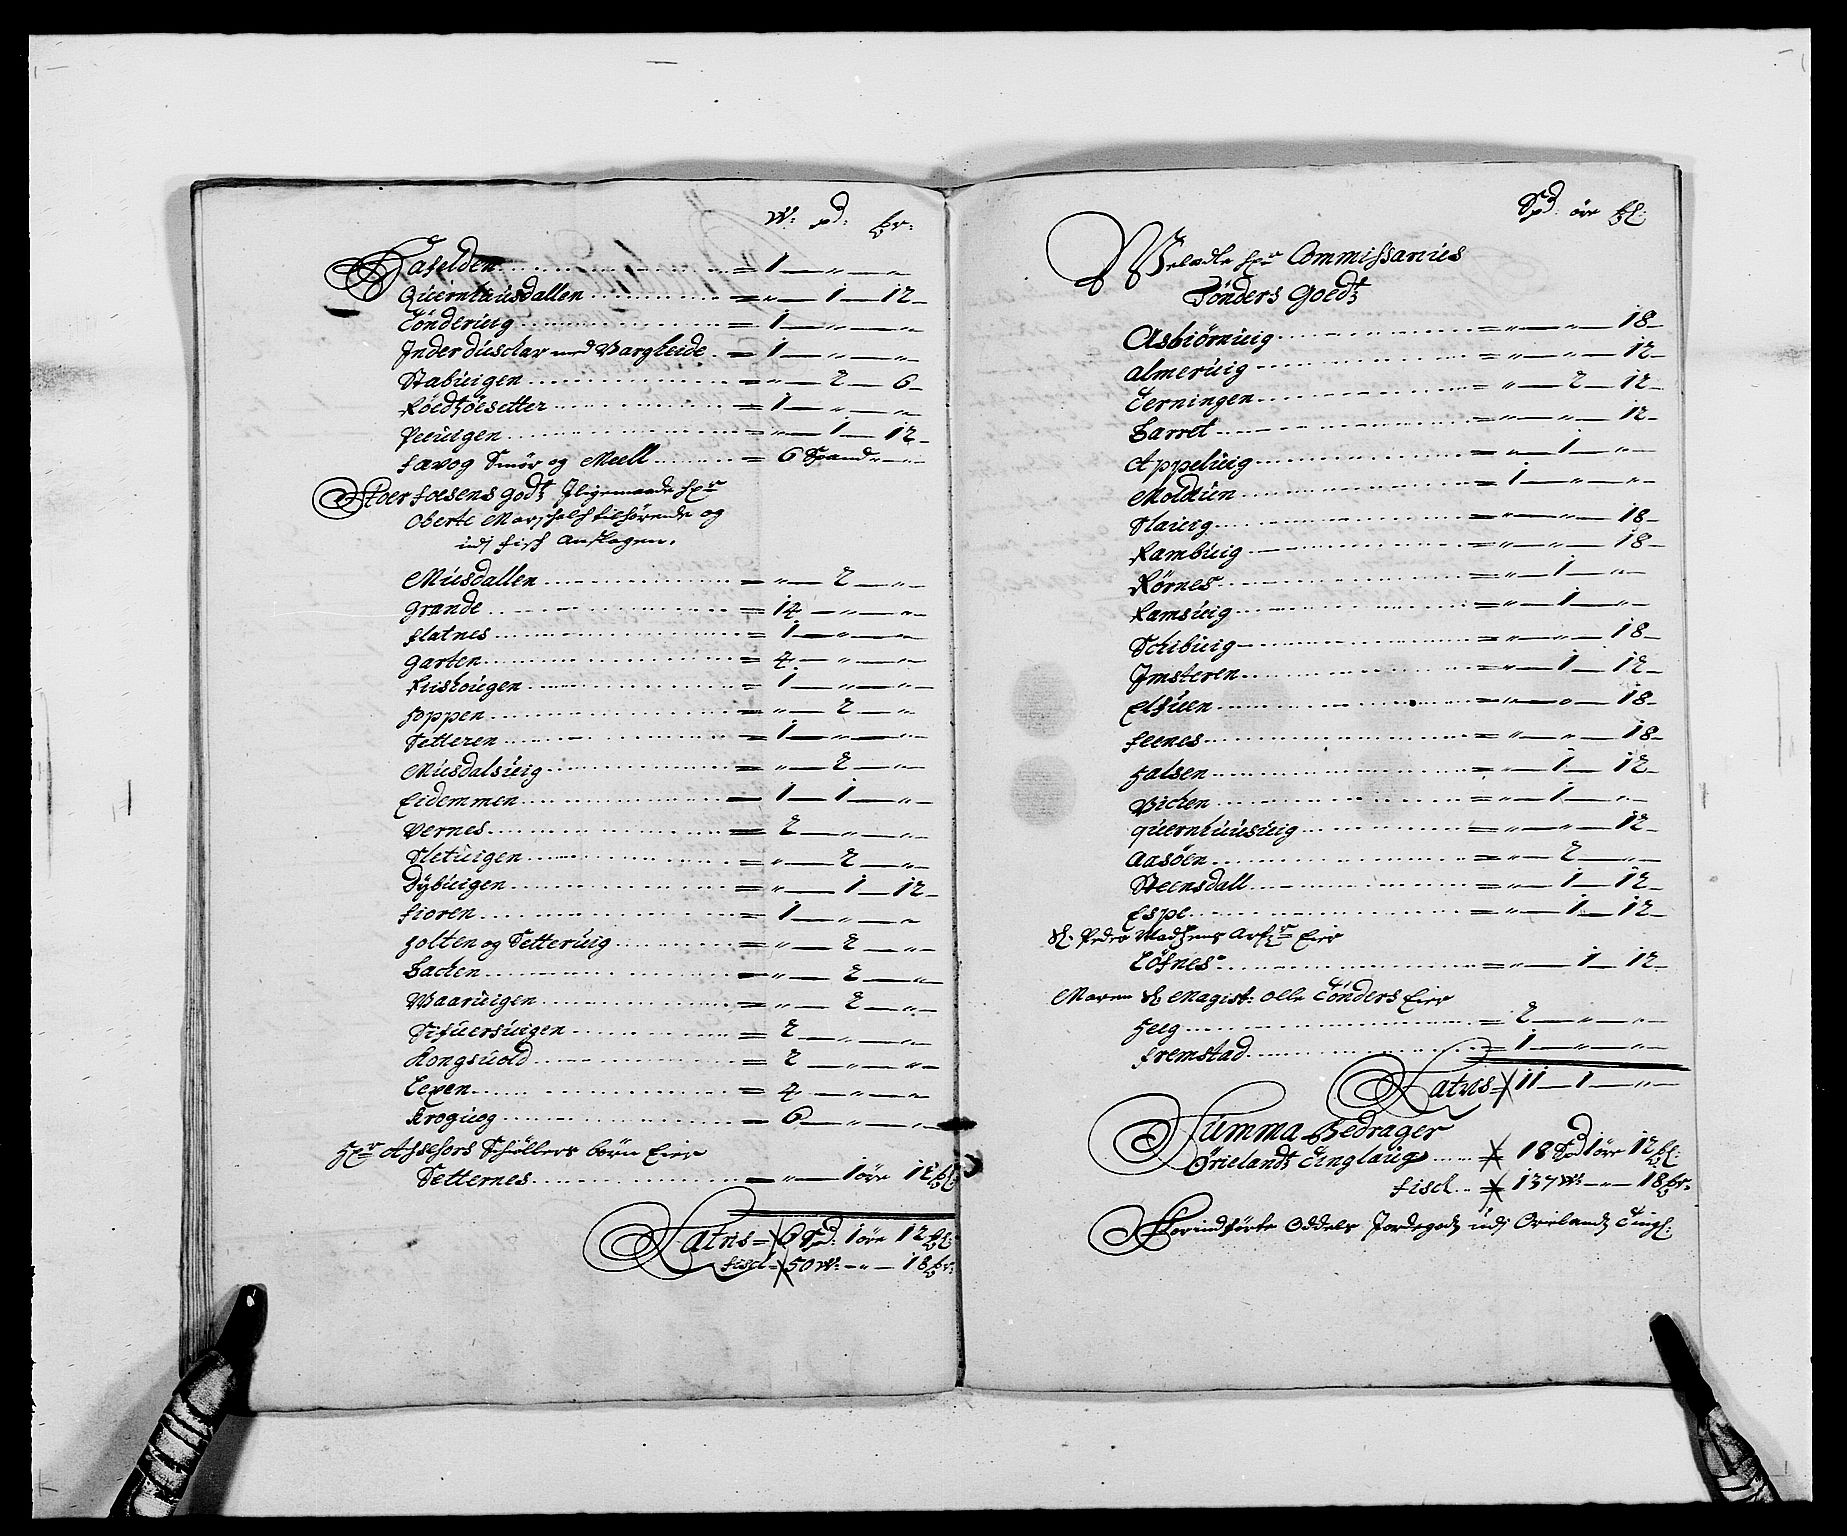 W: pd: ƀr:
Hafelden = 1 — „ — „
Quernhuusdallen = „ — 1 — 12 —
Tönderuig = 1 — „ — „
Inder duschar med Bargheide = 1 — „ — „
Stabuigen = „ — 2 — 6 —
Röedsöesetter = 1 — „ — „
Peeuigen = „ — 1 — 12 —
Favog Smör og Meell = 6 Spand „ — „
Stoer Foesens godtz Iligemaade Hr
Oberte Marschalch tilhörende og
udj fisch Anslagen.
Musdallen = „ — 2 — „
Grande = 14 — „ — „
Flatnes = 1 — „ — „
Garten = 4 — „ — „
Kiishougen = 1 — „ — „
Hoppen = „ — 2 — „
Setteren = 1 — „ — „
Musdalsuig = „ — 2 — „
Eidemmen = 1 — 1 — „
Vernes = 2 — „ — „
Sletuigen = „ — 2 — „
Dybuigen = „ — 1 — 12 —
Fioren = 1 — „ — „
Holten og Setteruig = „ — 2 — „
Bachen = „ — 2 — „
Waaruigen = „ — 2 — „
Sifuersuigen = 2 — „ — „
Kongsuold = 2 — „ — „
Lexen = 4 — „ — „
Kroguog = 6 — „ — „
Hr Assessors Schöllers börn Eier
Setternes = „ — 1 öre 12 ƀl:
Latus = 6 Spd: 1 öre 12 ƀl:
fisch = 50 W: — „ — 18 ƀr:
Spd: öre ƀl:
Welædle Hr Commissarius
Tönders Goedtz
Asbiörnuig = „ — „ — 18 —
Almeruig = „ — „ — 12 —
Terningen = „ — 2 — 12 —
Barret = „ — „ — 12 —
Appeluig = „ — 1 — „
Moldtuen = 1 — „ — „
Slauig = „ — „ — 18 —
Rambuig = „ — „ — 18 —
Körnes = „ — 1 — „
Ramsuig = „ — 1 — „
Schibuig = „ — „ — 18 —
Imsteren = „ — 1 — 12 —
Elfuen = „ — o — 18 —
Feenes = „ — „ — 18 —
Halsen = „ — 1 — 12 —
Wichen = „ — 1 — „
Quernhuusuig = „ — „ — 12 —
Aasöen = „ — 2 — „
Steensdall = „ — 1 — 12 —
Espe = „ — 1 — 12 —
Sl: Peder Madsens Arfr Eier
Löfnes = „ — 1 — 12 —
Maren Sl Magist: Olle Tönders Eier
Helg = 2 — „ — „
Fremstad = 1 — „ — „
Latus = 11 — 1 — „
Summa Bedrager
Örielandtz Tinglaug = 18 Spd 1 öre 12 ƀl:
fisch = 137 W: — „ — 18 ƀr:
Forindförte Oddels Jordegodz udj Örelandz Tingl: